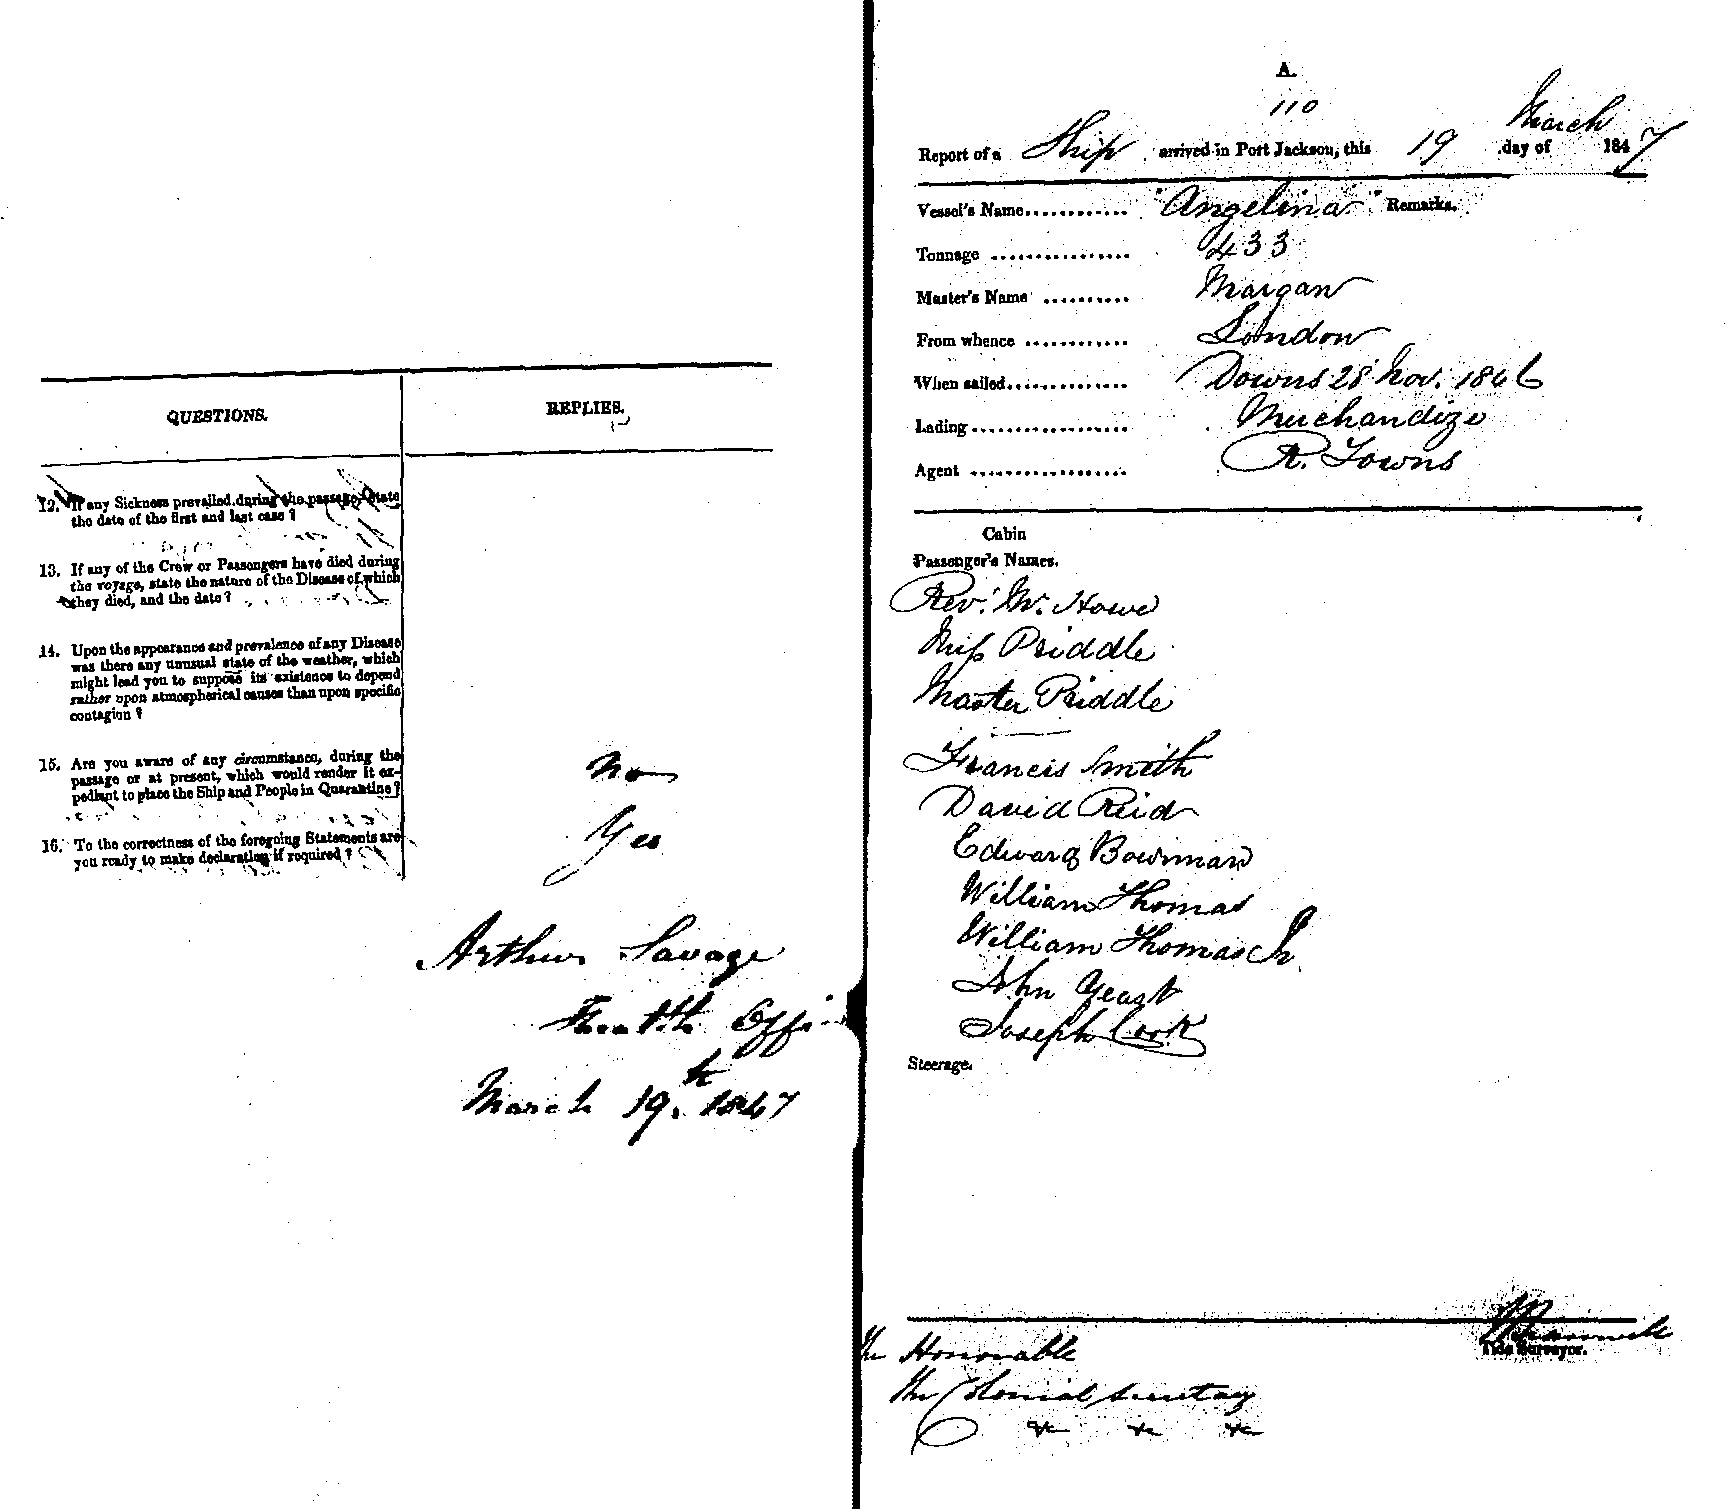 QUESTIONS. REPLIES.
12. If any Sickness prevailed during the passage, state
the date of the first and last case?
13. If any of the Crew or Passengers have died during
the voyage, state the nature of the Disease of which
they died, and the date?
14. Upon the appearance and prevalence of any Disease
was there any unusual state of the weather, which
might lead you to suppose its existence to depend
rather upon atmospherical causes than upon specific
contagion?
15. Are you aware of any circumstance, during the
passage or at present, which would render it ex-
pedient to place the Ship and People in Quarantine? No
16. To the correctness of the foregoing Statements are
you ready to make declaration if required? Yes
Arthur Savage
Health Offi
March 19th. 1847
A.
110
Report of a Ship arrived in Port Jackson, this 19 day of March 1847
Vessel's Name............ "Angelina" Remarks.
Tonnage ................ 433
Master's Name .......... Morgan
From whence ............ London
When sailed.............. Downs 28 Nov. 1846
Lading.................. Merchandize
Agent .................. R. Towns
Cabin
Passenger's Names.
Rev. Mr. Howe
Miss Priddle
Master Priddle
Francis Smith
David Reid
Edward Bowman
William Thomas
William Thomas Jr
John Yeast
Joseph Cook
Steerage.
Tide Surveyor.
The Honorable
The Colonial Secretary
&c &c &c